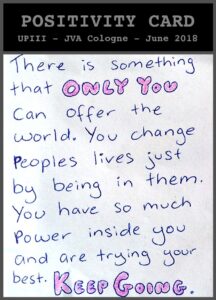 POSITIVITY CARD
UPIII - JVA Cologne - June 2018
There is something
that ONLY YOU
can offer the
world. You change
Peoples lives just
by being in them.
You have so much
Power inside you
and are trying your
best. KEEP GOING.